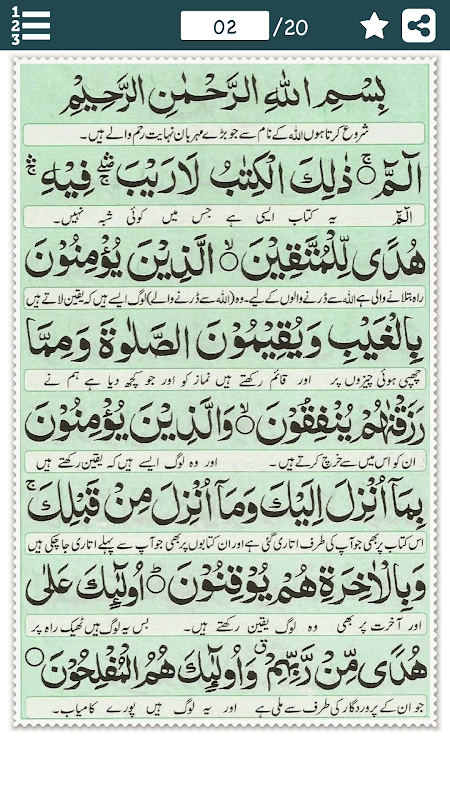 1
2
3
02
/20
بِسْمِ اللّٰهِ الرَّحْمٰنِ الرَّحِيْمِ
شروع کرتا ہوں اللہ کے نام سے جو بڑے مہربان نہایت رحم والے ہیں۔
الٓمّٓ ۚ○ ذٰلِكَ الْكِتٰبُ لَا رَيْبَ ۛۖۚ فِيْهِ ۛۚ
الٓمّٓ یہ کتاب ایسی ہے جس میں کوئی شبہ نہیں۔
هُدًى لِّلْمُتَّقِيْنَ ○ۙ الَّذِيْنَ يُؤْمِنُوْنَ
راہ بتلانے والی ہے اللہ سے ڈرنے والوں کے لیے۔ وہ (اللہ سے ڈرنے والے) لوگ ایسے ہیں کہ یقین لاتے ہیں
بِالْغَيْبِ وَيُقِيْمُوْنَ الصَّلٰوةَ وَمِمَّا
چھپی ہوئی چیزوں پر اور قائم رکھتے ہیں نماز کو اور جو کچھ دیا ہے ہم نے
رَزَقْنٰهُمْ يُنْفِقُوْنَ ○ۙ وَالَّذِيْنَ يُؤْمِنُوْنَ
ان کو اس میں سے خرچ کرتے ہیں۔ اور وہ لوگ ایسے ہیں کہ یقین رکھتے ہیں
بِمَآ اُنْزِلَ اِلَيْكَ وَمَآ اُنْزِلَ مِنْ قَبْلِكَ ۚ
اس کتاب پر بھی جو آپ کی طرف اتاری گئی ہے اور ان کتابوں پر بھی جو آپ سے پہلے اتاری جا چکی ہیں
وَبِالْاٰخِرَةِ هُمْ يُوْقِنُوْنَ ○ؕ اُولٰٓئِكَ عَلٰى
اور آخرت پر بھی وہ لوگ یقین رکھتے ہیں۔ بس یہ لوگ ہیں ٹھیک راہ پر
هُدًى مِّنْ رَّبِّهِمْ ۗ وَاُولٰٓئِكَ هُمُ الْمُفْلِحُوْنَ ○
جو ان کے پروردگار کی طرف سے ملی ہے اور یہ لوگ ہیں پورے کامیاب۔